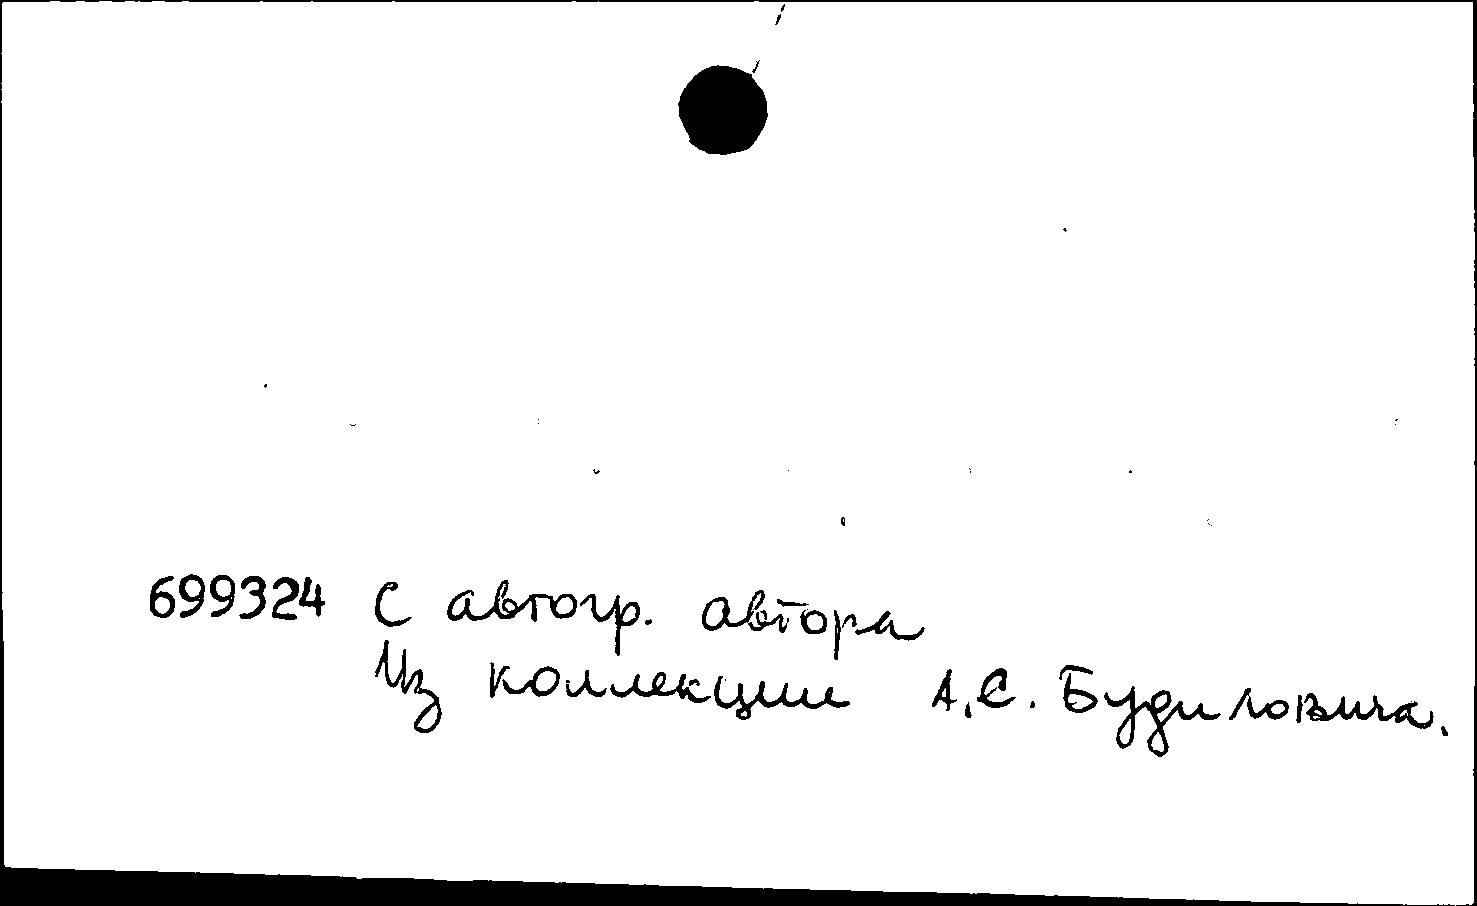 699324 С автогр. автора
Из коллекции А.С. Будиловича.